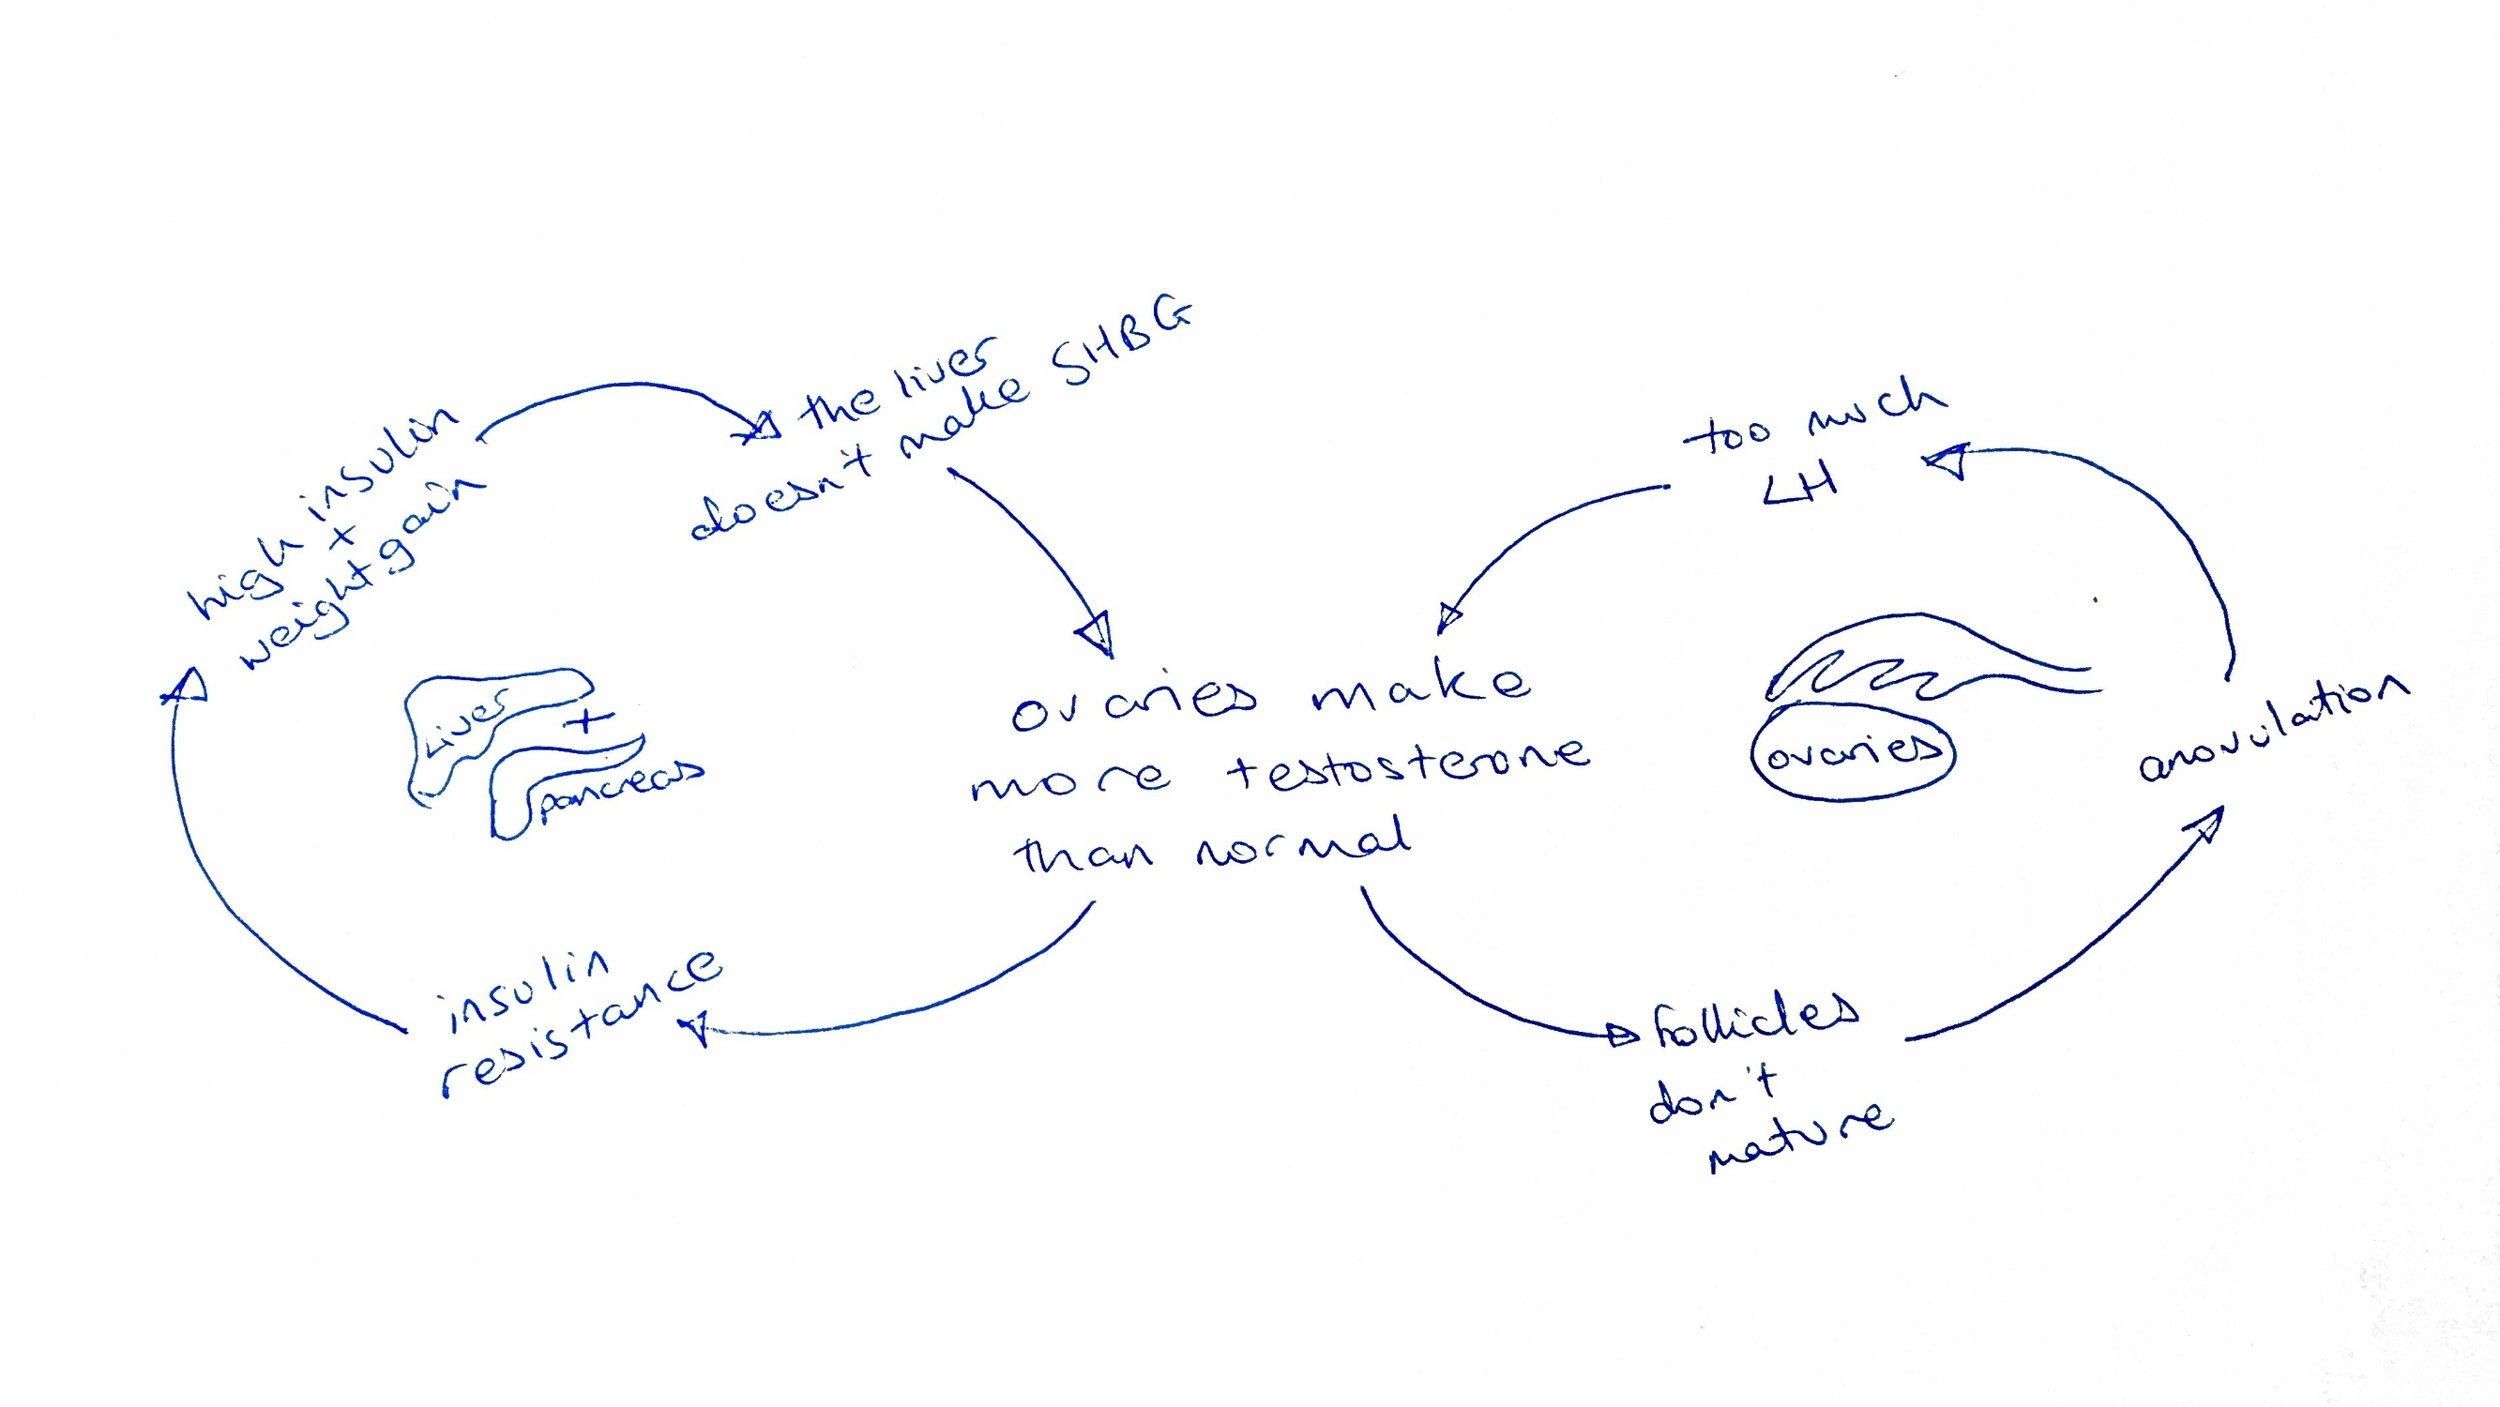 high insulin
+
weight gain
the liver
doesn't make SHBG
too much
LH
Liver
+
pancreas
ovaries make
more testosterone
than normal
ovaries
anovulation
insulin
resistance
follicles
don't
mature